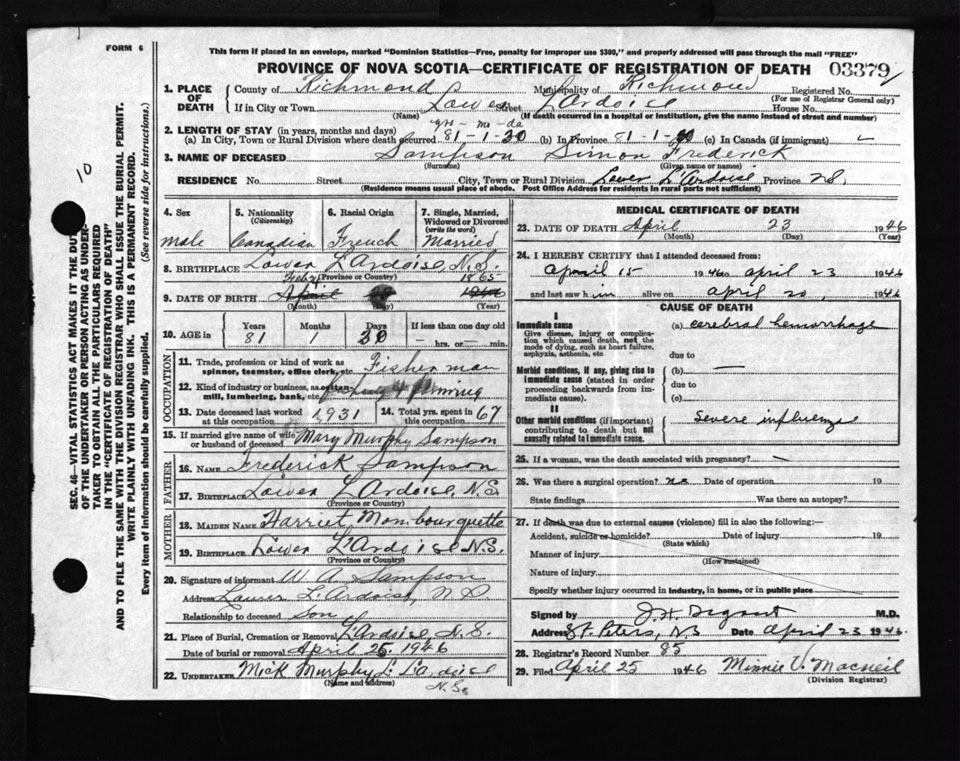 FORM 6
This form if placed in an envelope, marked "Dominion Statistics—Free, penalty for improper use $300," and properly addressed will pass through the mail "FREE"
PROVINCE OF NOVA SCOTIA—CERTIFICATE OF REGISTRATION OF DEATH 03379
1. PLACE OF DEATH
County of Richmond Municipality of Richmond Registered No.
(For use of Registrar General only)
If in City or Town Lower Street L'Ardoise House No.
(Name) (If death occurred in a hospital or institution, give the name instead of street and number)
2. LENGTH OF STAY (in years, months and days) yrs - mo - da
(a) In City, Town or Rural Division where death occurred 81-1-30 (b) In Province 81-1- (c) In Canada (if immigrant)
3. NAME OF DECEASED Sampson Simon Frederick
(Surname) (Given name or names)
RESIDENCE No. Street City, Town or Rural Division Lower L'Ardoise Province N.S.
(Residence means usual place of abode. Post Office Address for residents in rural parts not sufficient)
4. Sex
male
5. Nationality (Citizenship)
Canadian
6. Racial Origin
French
7. Single, Married, Widowed or Divorced (write the word)
Married
8. BIRTHPLACE Lower L'Ardoise, N.S.
(Province or County)
9. DATE OF BIRTH 1865
(Month) (Day) (Year)
10. AGE in Years Months Days If less than one day old
81 1 hrs. or min.
OCCUPATION
11. Trade, profession or kind of work as spinner, teamster, office clerk, etc. Fisherman
12. Kind of industry or business, as cotton-mill, lumbering, bank, etc.
13. Date deceased last worked at this occupation 1931
14. Total yrs. spent in 67
15. If married give name of wife or husband of deceased Mary Murphy Sampson
FATHER
16. NAME Frederick Sampson
17. BIRTHPLACE Lower L'Ardoise, N.S.
(Province or County)
MOTHER
18. MAIDEN NAME Harriet Mombourquette
19. BIRTHPLACE Lower L'Ardoise N.S.
(Province or County)
20. Signature of informant W A Sampson
Address Lower L'Ardoise, N.S.
Relationship to deceased Son
21. Place of Burial, Cremation or Removal L'Ardoise, N.S.
Date of burial or removal April 25, 1946
22. UNDERTAKER Mick Murphy L. L'Ardoise
(Name and address) N.S.
MEDICAL CERTIFICATE OF DEATH
23. DATE OF DEATH April 23 1946
(Month) (Day) (Year)
24. I HEREBY CERTIFY that I attended deceased from:
April 15 1946 to April 23 1946
and last saw him alive on April 20 1946
CAUSE OF DEATH
I
Immediate cause (a) cerebral hemorrhage
Give disease, injury or complication which caused death, not the mode of dying, such as heart failure, asphyxia, asthenia, etc
due to
Morbid conditions, if any, giving rise to immediate cause (stated in order proceeding backwards from immediate cause). (b)
due to
(c)
II
Other morbid conditions (if important) contributing to death but not causally related to immediate cause. Severe influenza
25. If a woman, was the death associated with pregnancy?
26. Was there a surgical operation? no Date of operation 19
State findings Was there an autopsy?
27. If death was due to external causes (violence) fill in also the following:—
Accident, suicide or homicide? Date of injury 19
(State which)
Manner of injury
(How sustained)
Nature of injury
Specify whether injury occurred in industry, in home, or in public place
Signed by M.D.
Address St. Peters, N.S. Date April 23 1946
28. Registrar's Record Number 85
29. Filed April 25 1946 Minnie V. MacNeil
(Division Registrar)
SEC. 46—VITAL STATISTICS ACT MAKES IT THE DUTY
OF THE UNDERTAKER OR PERSON ACTING AS UNDER-
TAKER TO OBTAIN ALL THE PARTICULARS REQUIRED
IN THE "CERTIFICATE OF REGISTRATION OF DEATH"
AND TO FILE THE SAME WITH THE DIVISION REGISTRAR WHO SHALL ISSUE THE BURIAL PERMIT.
WRITE PLAINLY WITH UNFADING INK. THIS IS A PERMANENT RECORD.
Every item of information should be carefully supplied. (See reverse side for instructions.)
10